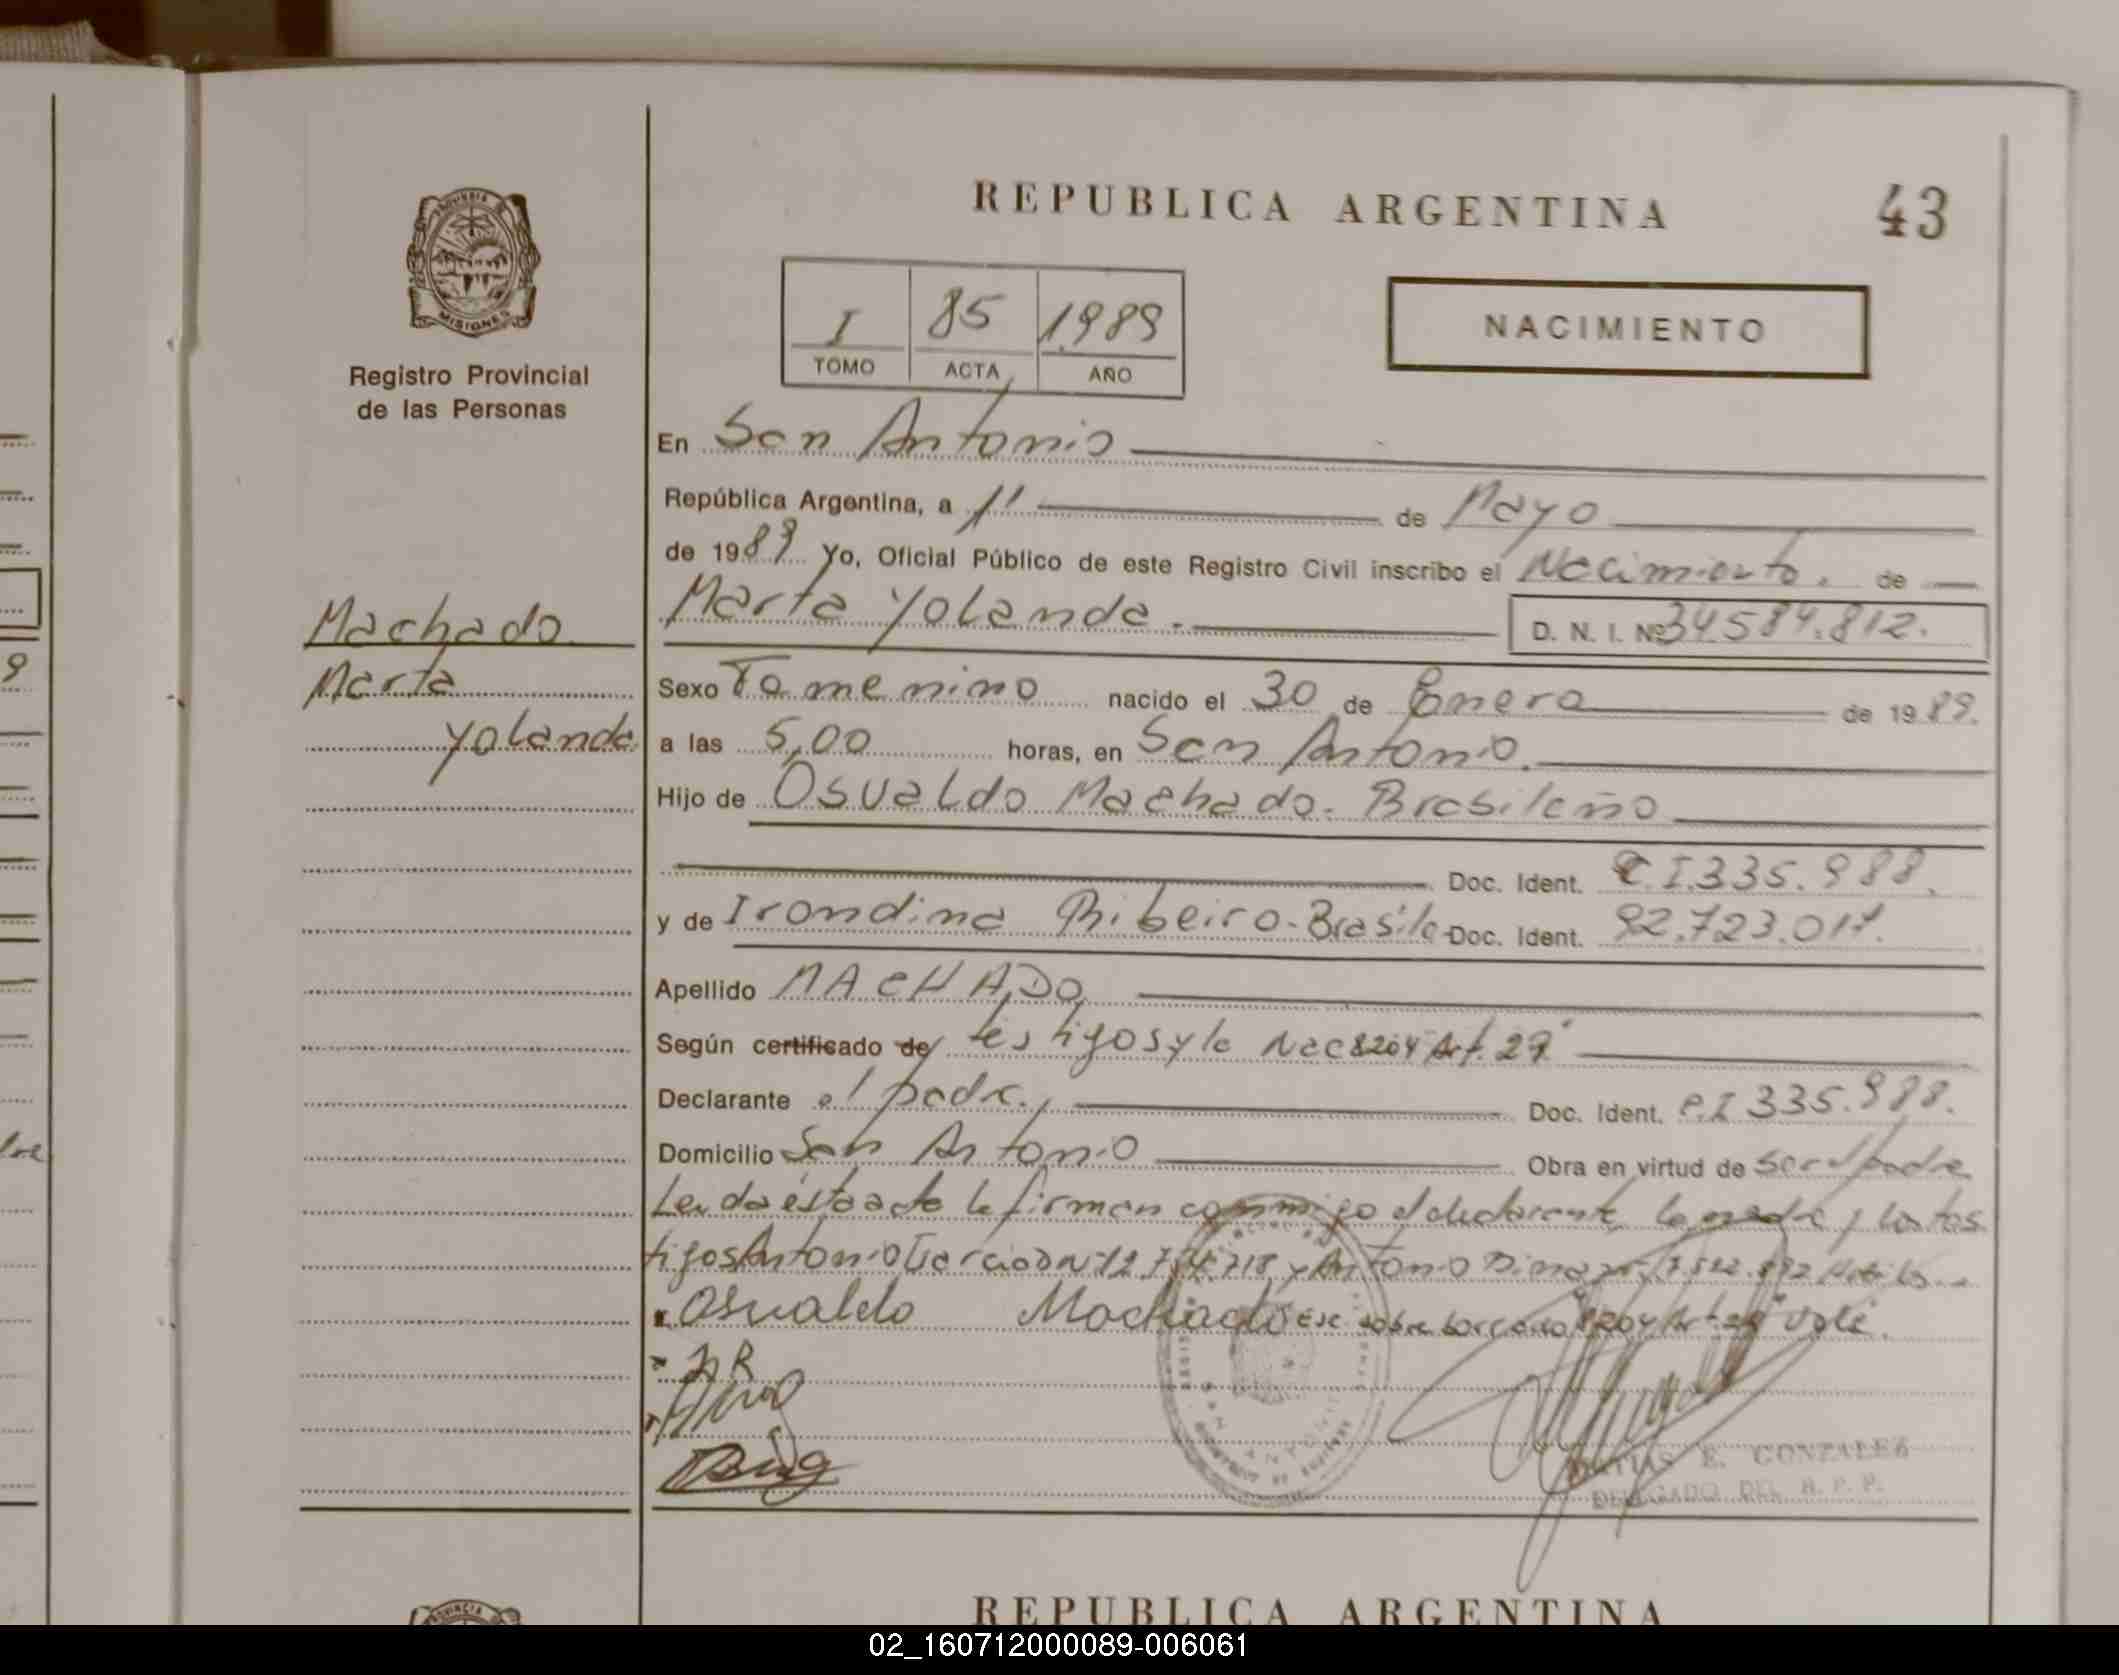 REPUBLICA ARGENTINA
43
PROVINCIA DE
MISIONES
Registro Provincial
de las Personas
I
85
1989
TOMO
ACTA
AÑO
NACIMIENTO
En San Antonio
República Argentina, a 11 de Mayo
de 1989 Yo, Oficial Público de este Registro Civil inscribo el Nacimiento. de
Machado
Marta
Yolanda
Marta Yolanda. D. N. I. Nº 34.584.812.
Sexo Femenino nacido el 30 de Enero de 1989.
a las 5,00 horas, en San Antonio.
Hijo de Osvaldo Machado. Brasileño
Doc. Ident. C.I.335.988.
y de Irondina Ribeiro-Brasile Doc. Ident. 92.723.017.
Apellido MACHADO
Según certificado de testigos y la Nac 8204 Art. 29
Declarante el padre, Doc. Ident. C.I 335.988.
Domicilio San Antonio Obra en virtud de ser el padre
Leida ésta acta la firman conmigo el declarante, la madre y los tes
tigos Antonio Garcia DNI 12.714.718 y Antonio
Osvaldo Machado Esc sobre borrado "8204 Art 29" Vale.
IR
E. GONZALEZ
DELEGADO DEL R. P. P.
REPUBLICA ARGENTINA
PROVINCIA
02_160712000089-006061